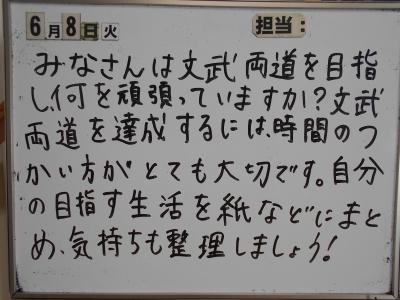 6月8日火 担当:
みなさんは文武両道を目指
し、何を頑張っていますか?文武
両道を達成するには、時間のつ
かい方がとても大切です。自分
の目指す生活を紙などにまと
め、気持ちも整理しましょう!